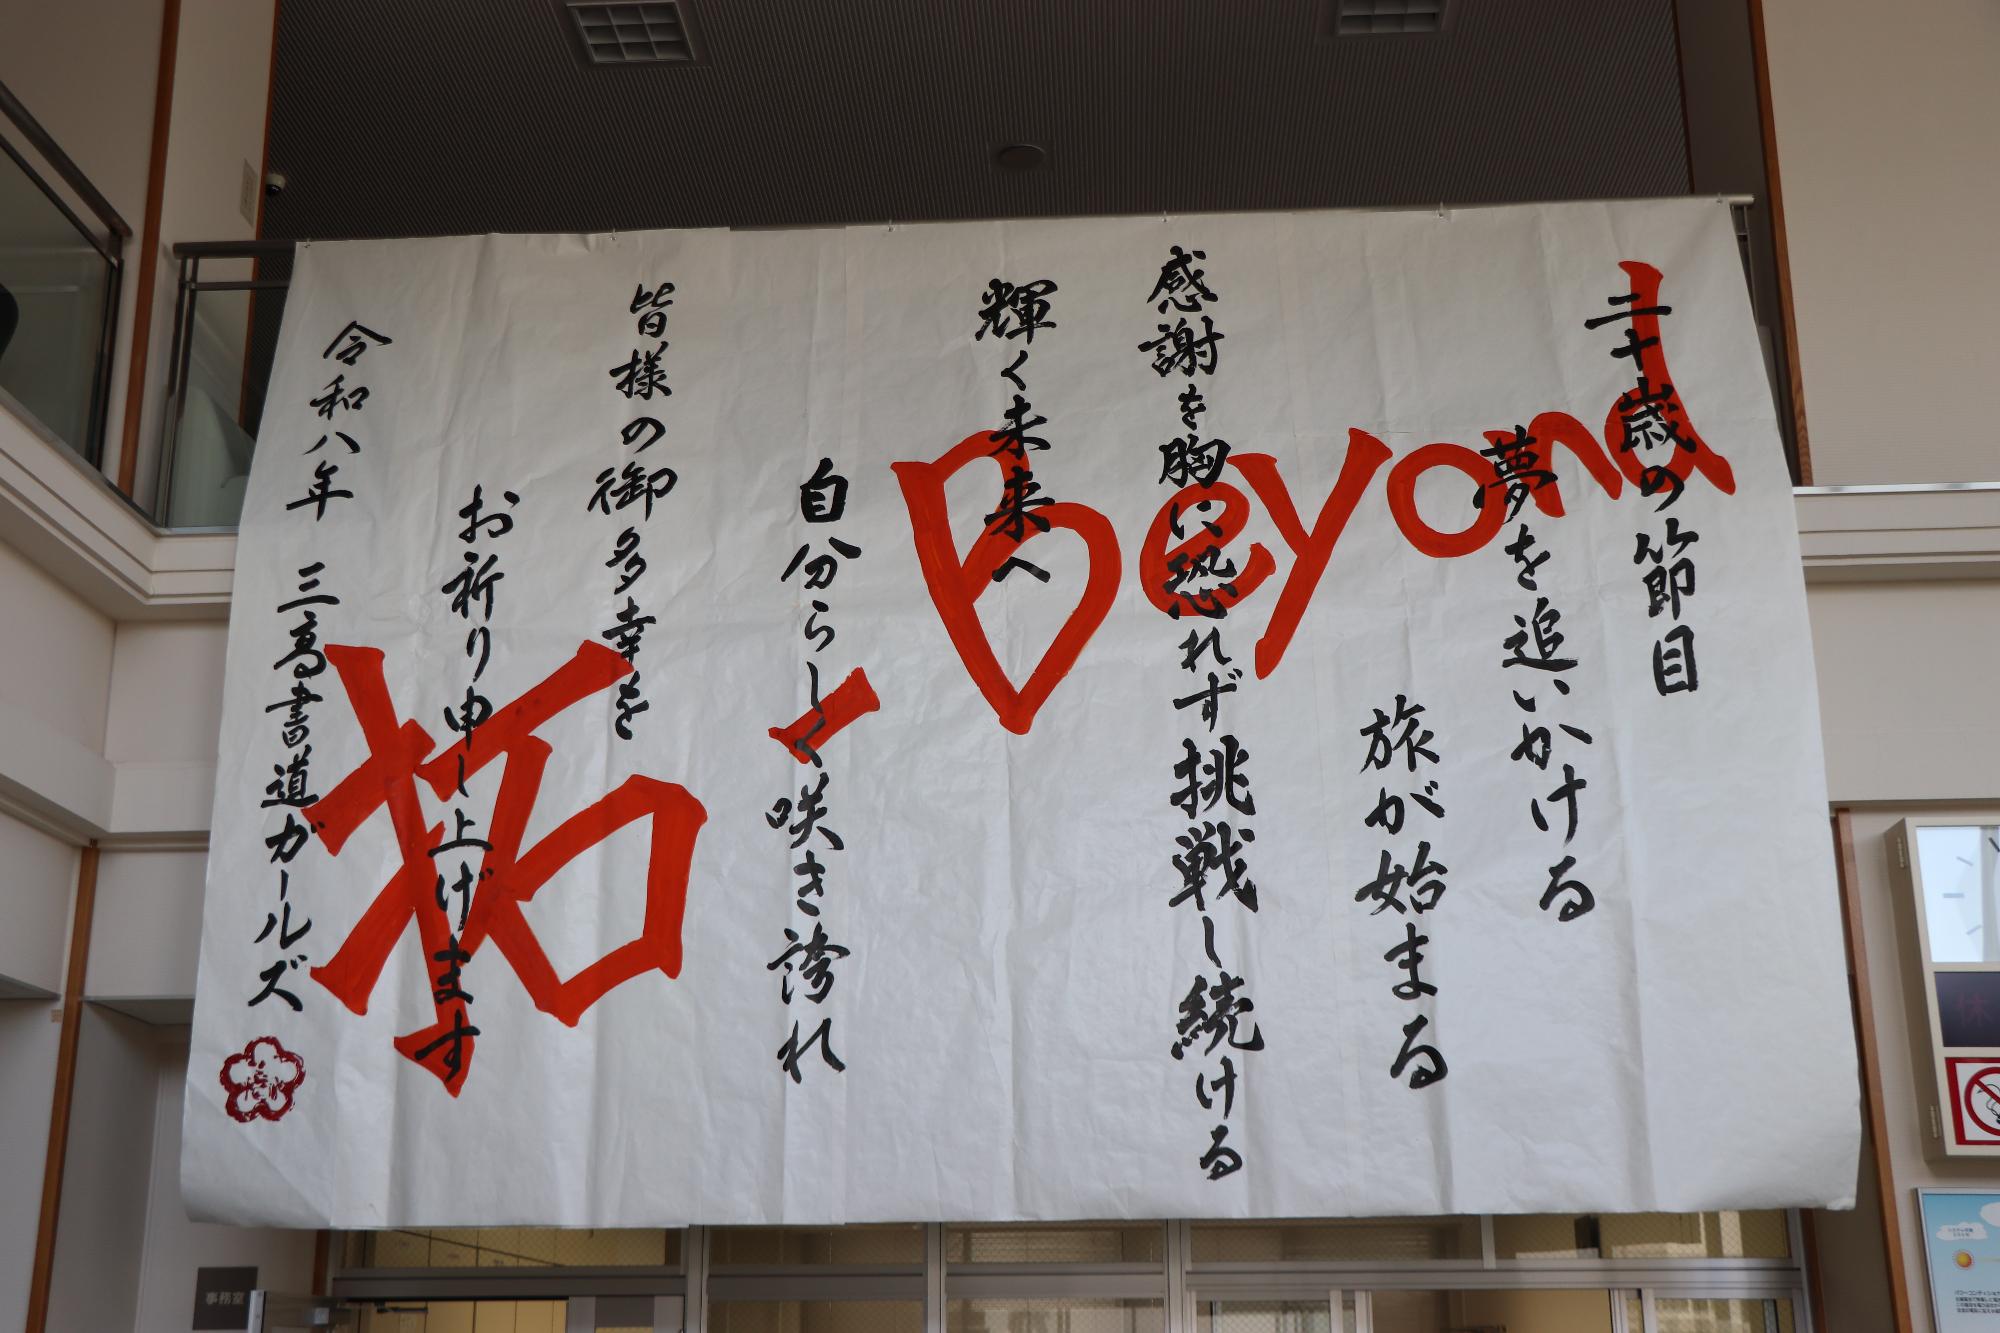 二十歳の節目
夢を追いかける
旅が始まる
感謝を胸に恐れず挑戦し続ける
輝く未来へ
自分らしく咲き誇れ
皆様の御多幸を
お祈り申し上げます
令和八年 三高書道ガールズ
Beyond
ー
拓
事務室
休